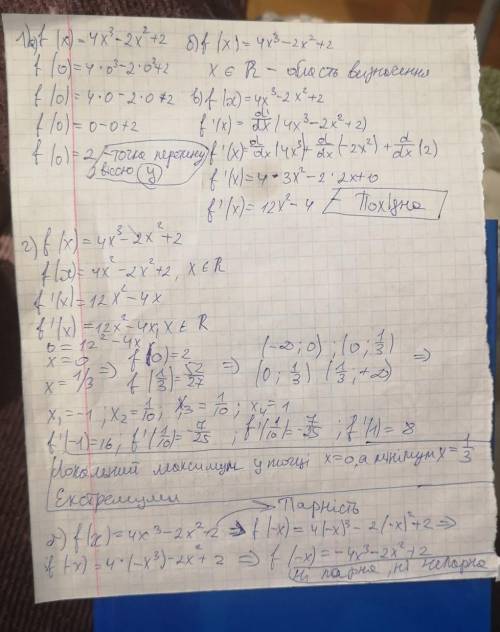 1) а) f(x)=4x³-2x²+2
f(0)=4·0³-2·0²+2
f(0)=4·0-2·0+2
f(0)=0-0+2
f(0)=2 -точка перетину
з віссю y
б) f(x)=4x³-2x²+2
x∈R - область визначення
в) f(x)=4x³-2x²+2
f'(x)=d/dx(4x³-2x²+2)
f'(x)=d/dx(4x³)+d/dx(-2x²)+d/dx(2)
f'(x)=4·3x²-2·2x+0
f'(x)=12x²-4 - Похідна
г) f(x)=4x³-2x²+2
f(x)=4x²-2x²+2, x∈R
f'(x)=12x²-4x
f'(x)=12x²-4x, x∈R
0=12²-4x
x=0 => f(0)=2 => (-∞;0);(0;1/3) =>
x=1/3 f(1/3)=52/27 (0;1/3) (1/3;+∞)
x₁=-1; x₂=1/10; x₃=1/10; x₄=1
f'(-1)=16; f'(1/10)=-7/25; f'(1/10)=-7/25; f'(1)=8
Локальний максимум у точці x=0, а мінімум x=1/3
Екстремуми
Парність
f(x)=4x³-2x²+2 => f(-x)=4(-x)³-2(-x)²+2 =>
f(-x)=4·(-x³)-2x²+2 => f(-x)=-4x³-2x²+2
ні парна, ні непарна